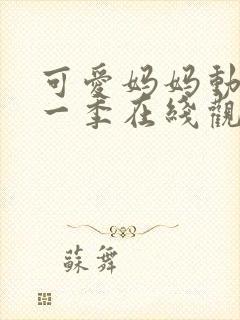 可愛妈妈動
一季在綫觀
蘇舞